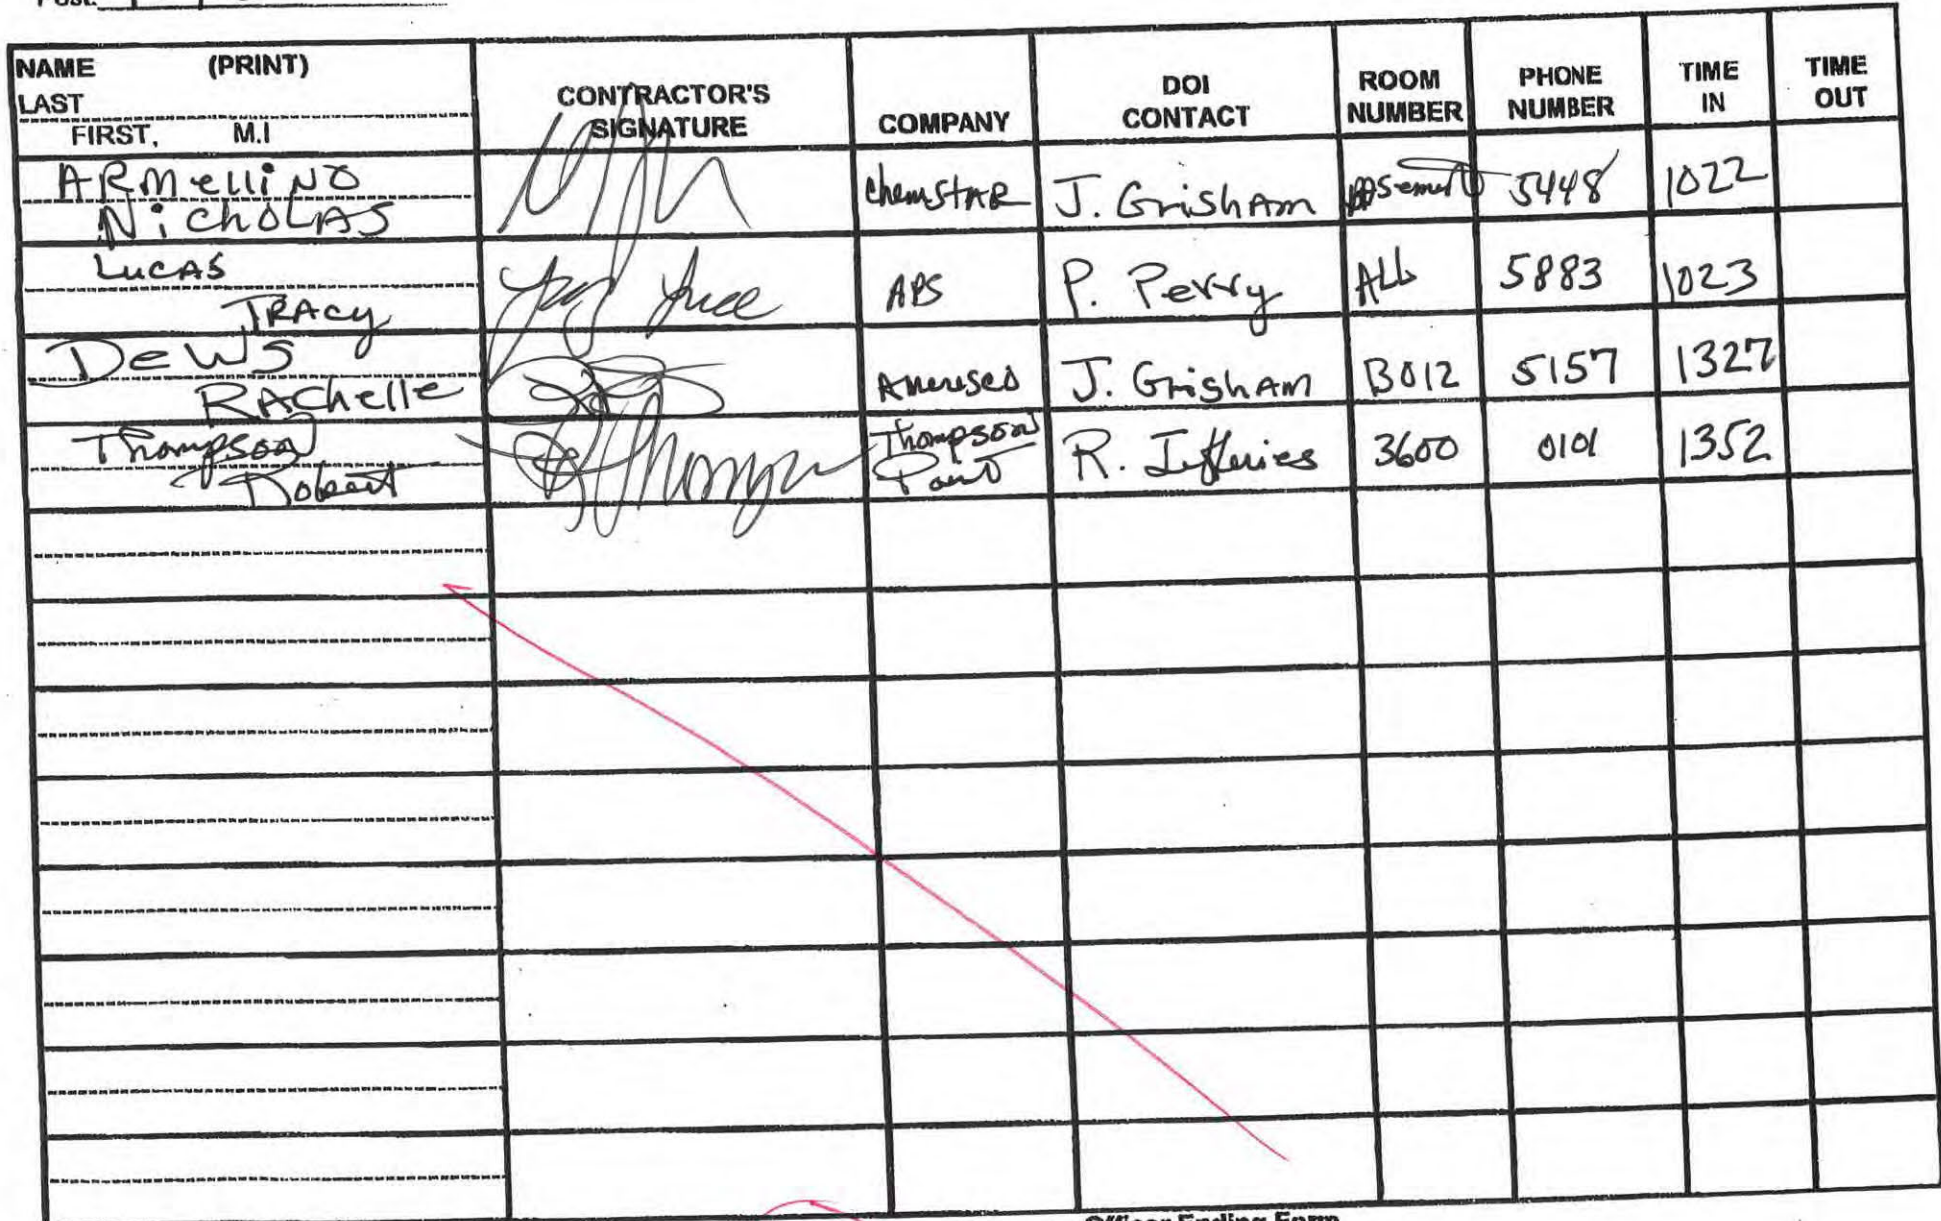 Post:
NAME (PRINT)
LAST
FIRST, M.I
CONTRACTOR'S
SIGNATURE
COMPANY
DOI
CONTACT
ROOM
NUMBER
PHONE
NUMBER
TIME
IN
TIME
OUT
ARMelliNO
NicHOLAS
ChemSTAR
J. GrishAm
BASement
5448
1022
LucAS
TRAcy
APS
P. Perry
ALL
5883
1023
DeWS
RAchelle
J. GrishAm
B012
5157
1327
Thompson
Robert
Thompson
R.
3600
0101
1352
Officer Ending Form